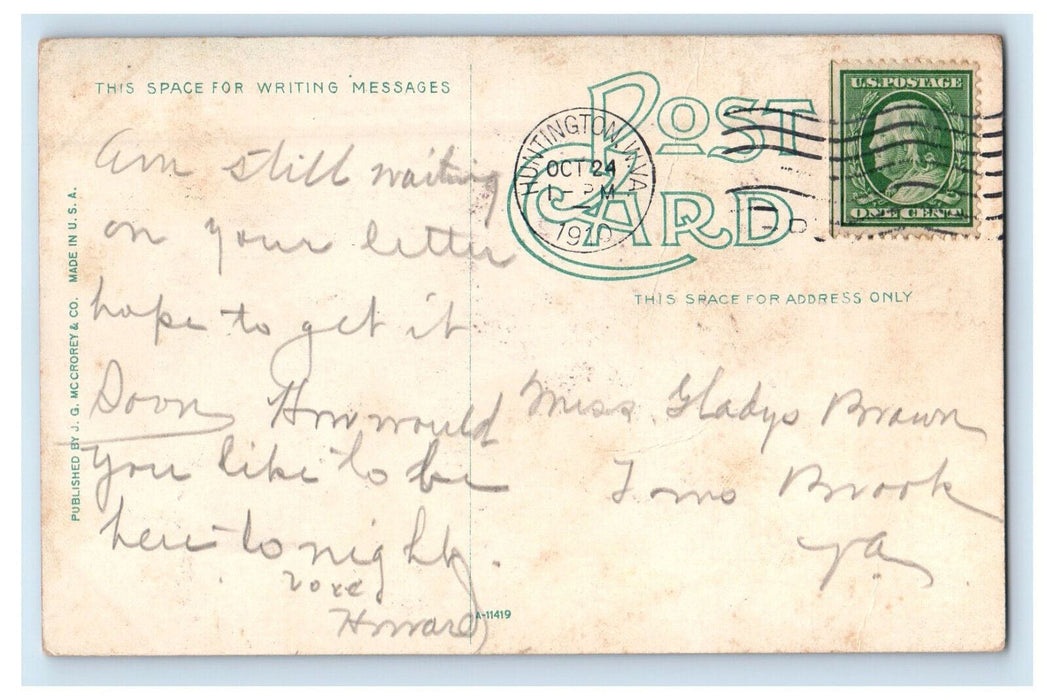 THIS SPACE FOR WRITING MESSAGES
Am still waiting
on your letter
hope to get it
Soon How would
you like to be
here to night.
Howard
PUBLISHED BY J. G. MCCROREY & CO. MADE IN U.S.A.
A-11419
POST
CARD
HUNTINGTON, W.VA.
OCT 24
PM
1910
U.S. POSTAGE
ONE CENT
THIS SPACE FOR ADDRESS ONLY
Miss. Gladys Brown
Toms Brook
Va